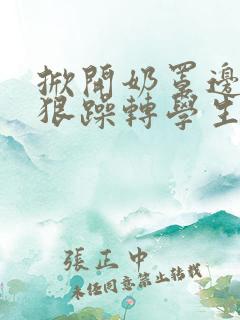 掀開奶罩邊
狠躁轉學生
張正中
未经同意禁止转载